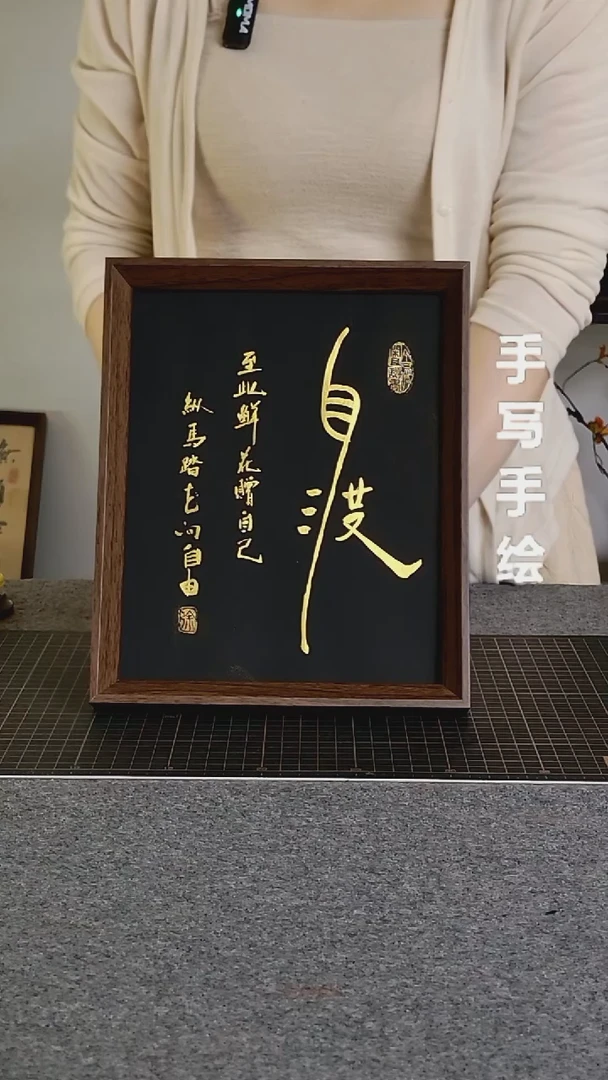 自渡
至此鲜花赠自己
纵马踏花向自由
手写手绘